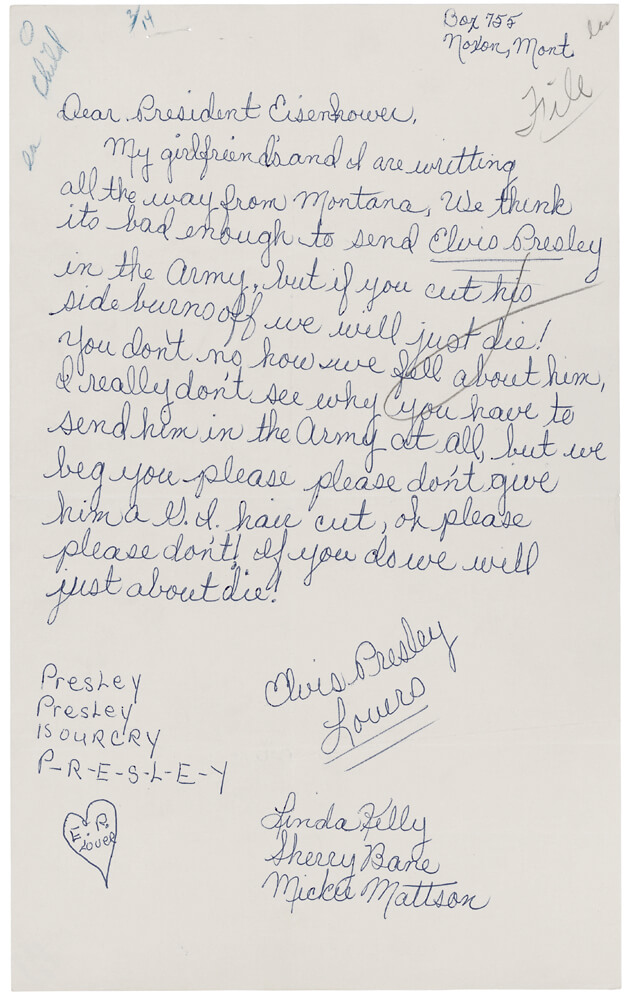 3/14
Child
Box 755
Noxon, Mont.
File
Dear President Eisenhower,
My girlfriend's and I are writting
all the way from Montana, We think
its bad enough to send Elvis Presley
in the Army, but if you cut his
side burns off we will just die!
You don't no how we fell about him,
I really don't see why you have to
send him in the Army at all, but we
beg you please please don't give
him a G.I. hair cut, oh please
please don't! If you do we will
just about die!
Elvis Presley
Lovers
Presley
Presley
IS OUR CRY
P-R-E-S-L-E-Y
E. P.
Lover
Linda Kelly
Sherry Bane
Mickie Mattson